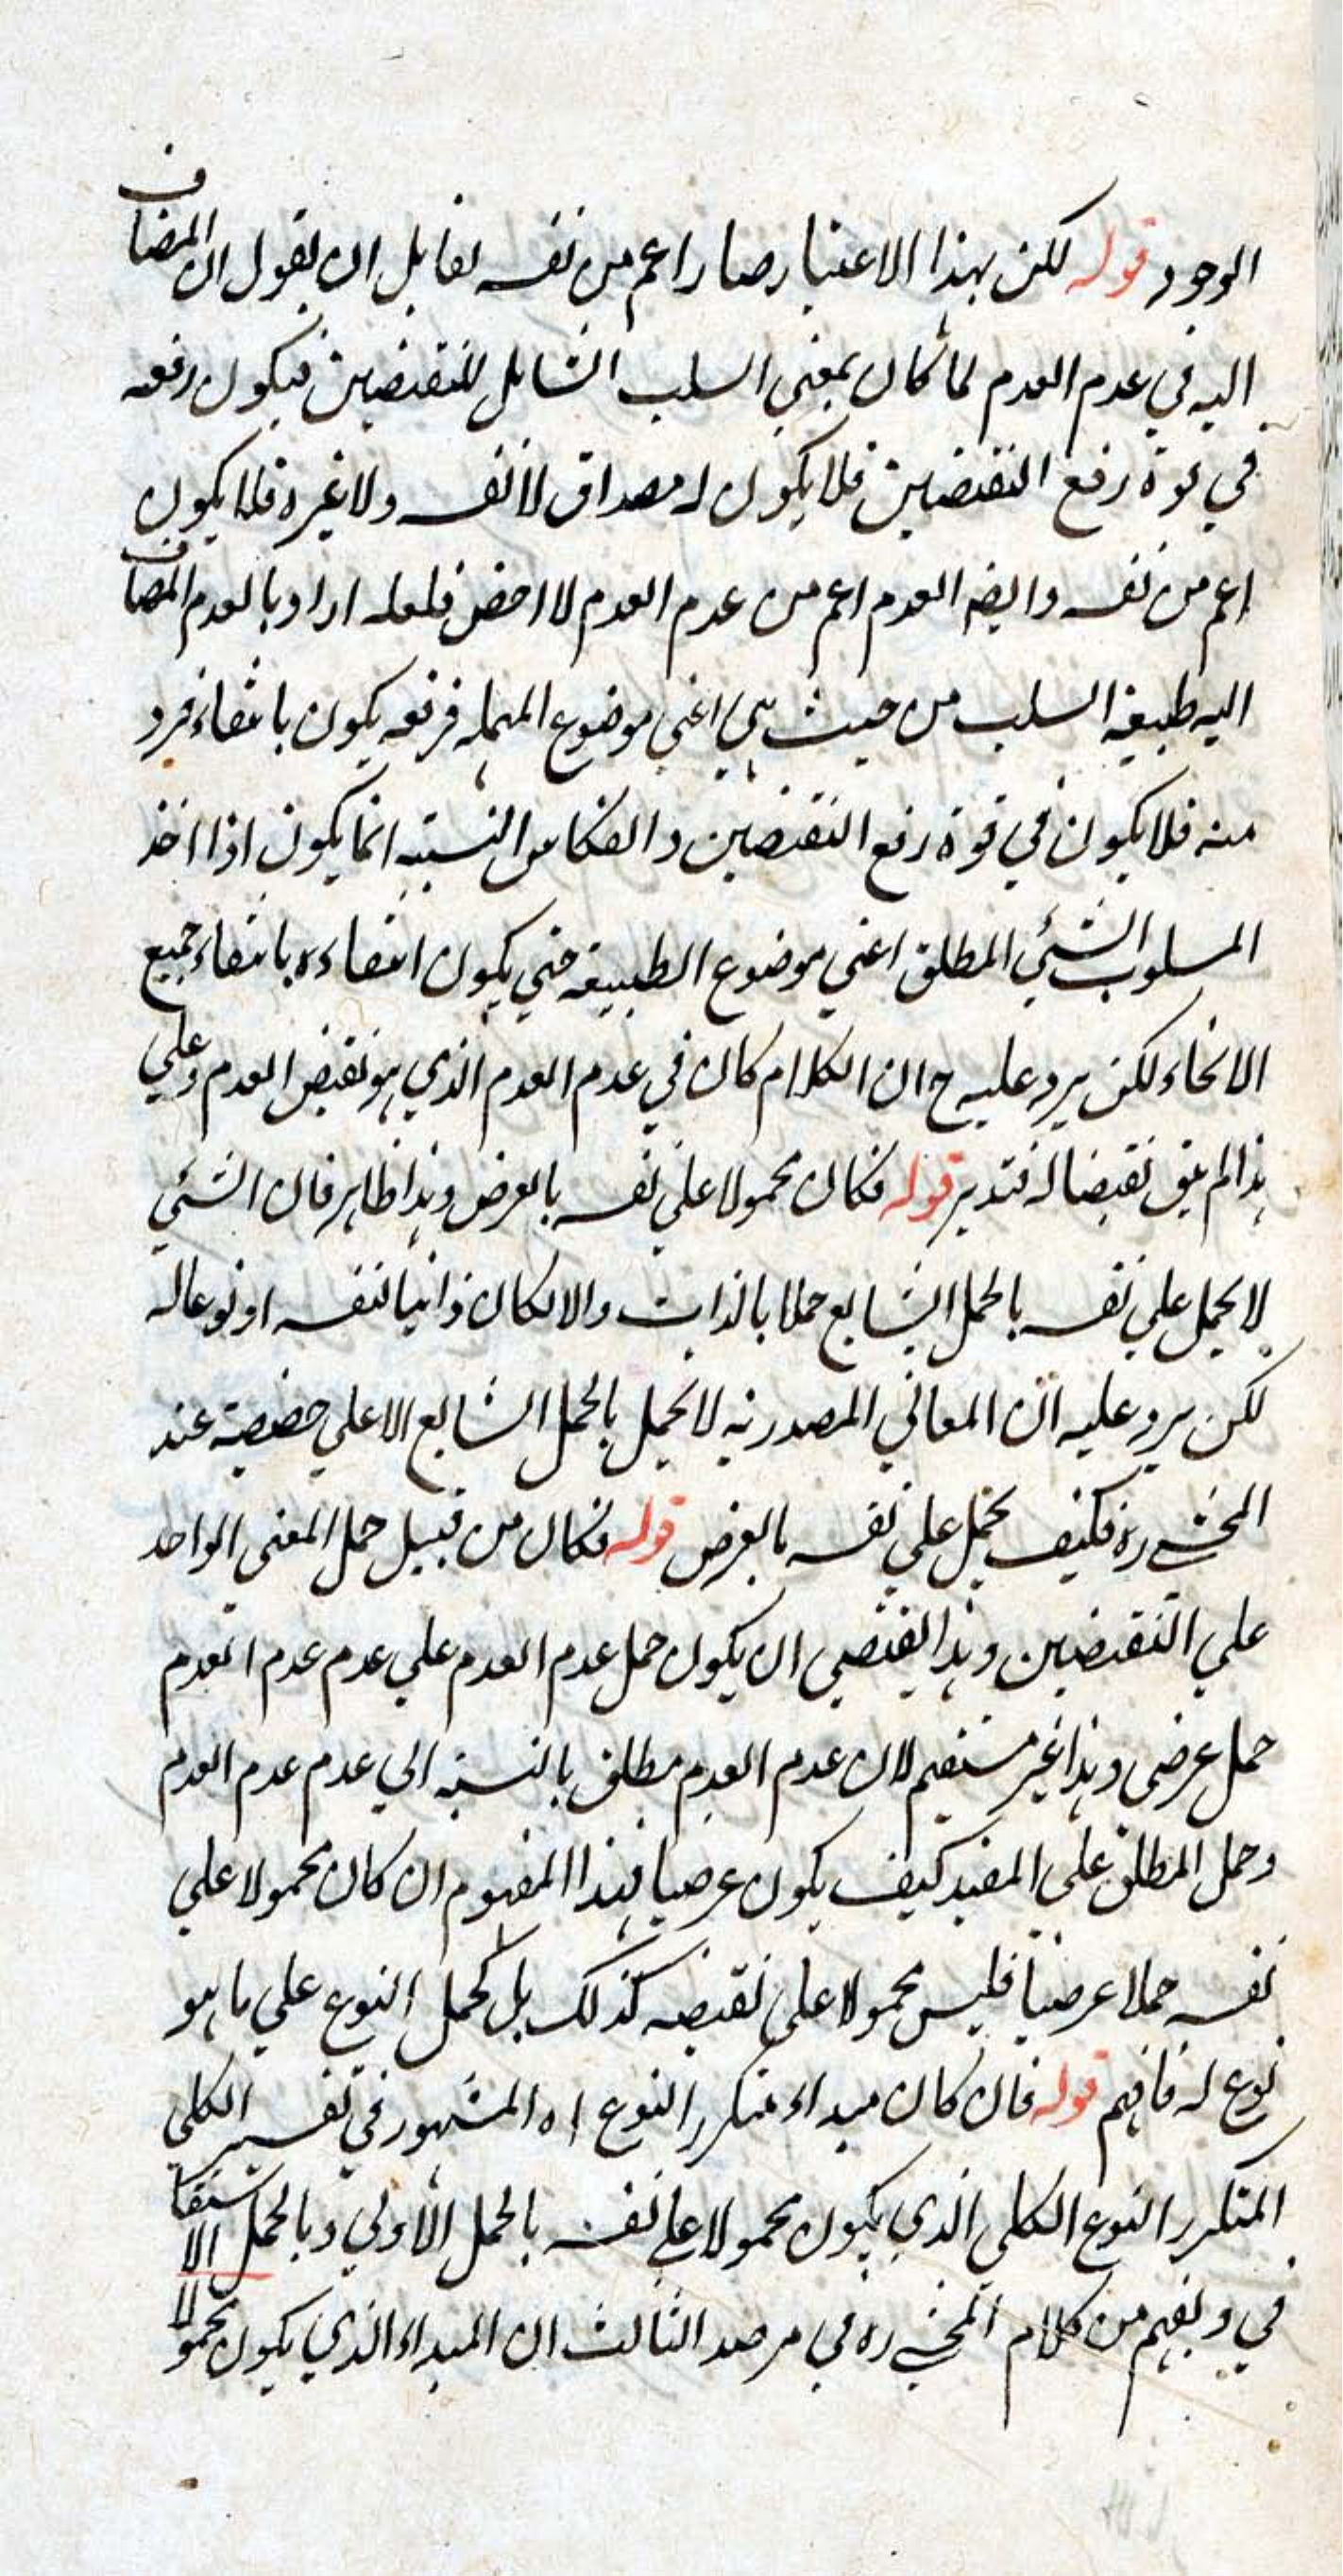 الوجود قوله لكن بهذا الاعتبار صار اعم من نفسه لقابل ان يقول ان المضاف
اليه في عدم العدم لما كان بمعني السلب الشامل للنقيضين فيكون رفعه
في قوة رفع النقيضين فلا يكون له مصداق لا نفسه ولا غيره فلا يكون
اعم من نفسه وايضه العدم اعم من عدم العدم لا اخص فلعله اراد بالعدم المضاف
اليه طبيعة السلب من حيث هي اعني موضوع المهملة فرفعه يكون بانتفاء فرد
منه فلا يكون في قوة رفع النقيضين وانعكاس النسبته انما يكون اذا اخذ
المسلوب الشئي المطلق اعني موضوع الطبيعة حتي يكون انتفاءه بانتفاء جميع
الانحاء لكن يرد عليه ح ان الكلام كان في عدم العدم الذي هو نقيض العدم وعلي
هذا لم يبق نقيضا له فتدبر قوله فكان محمولا علي نفسه بالعرض وهذا ظاهر فان الشئي
لا يحمل علي نفسه بالحمل الشايع حملا بالذات والا لكان ذاتيا لنفسه او نوعا له
لكن يرد عليه ان المعاني المصدريه لا تحمل بالحمل الشايع الا علي حصصية عند
المحشي ره فكيف يحمل علي نفسه بالعرض قوله فكان من قبيل حمل المعني الواحد
علي النقيضين وهذا يقتضي ان يكون حمل عدم العدم علي عدم عدم العدم
حمل عرضي وهذا غير مستقيم لان عدم العدم مطلق بالنسبة الي عدم عدم العدم
وحمل المطلق علي المقيد كيف يكون عرضيا فهذا المفهوم ان كان محمولا علي
نفسه حملا عرضيا فليس محمولا علي نقيضه كذلك بل كحمل النوع علي ما هو
نوع له فافهم قوله فان كان مبداء متكرر النوع اه المشهور في تفسير الكلي
المتكرر النوع الكلي الذي يكون محمولا علي نفسه بالحمل الاولي وبالحمل الاشتقا
في ويفهم من كلام المحشي ره في مرصد الثالث ان المبداء الذي يكون محمولا